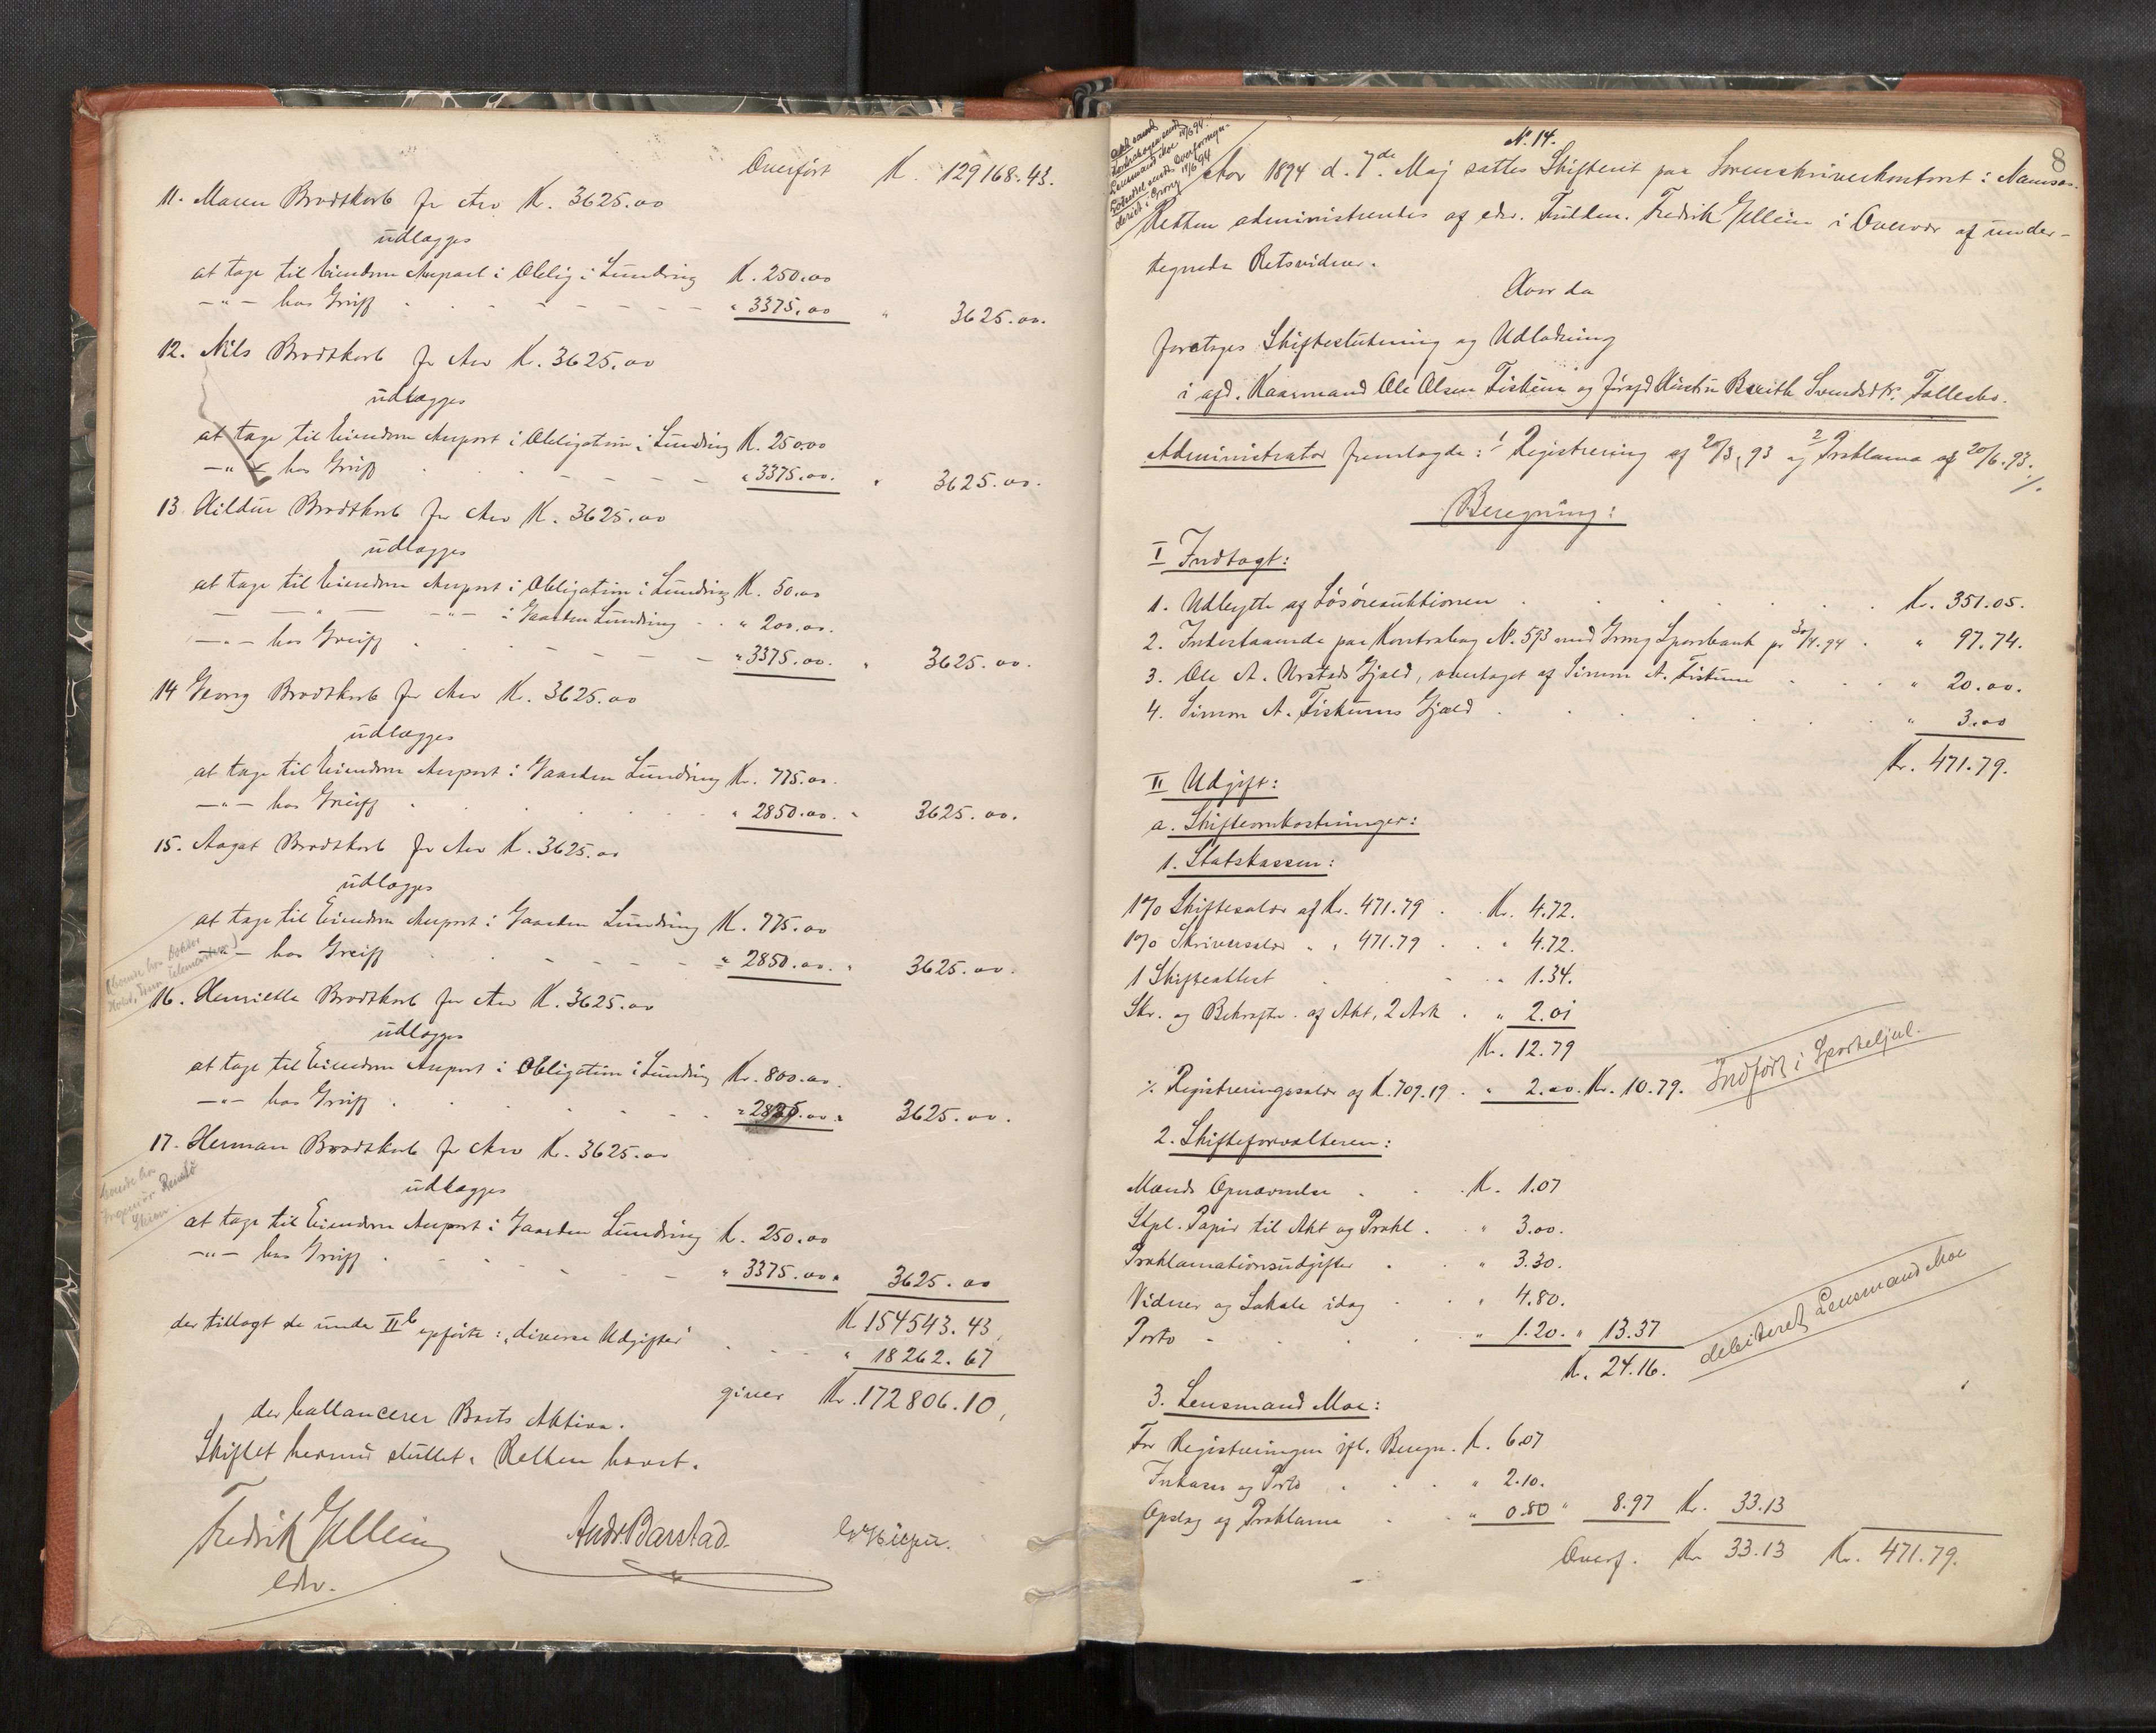 Overført K. 129168.43.
11. Maren Brodtkorb for Arv K. 3625.00
udlægges
at tage til Eiendom Anpart i Oblig. i Lundring K. 250.00
—"— hos Greiff " 3375.00 " 3625.00.
12. Nils Brodtkorb for Arv K. 3625.00
udlægges
at tage til Eiendom Anpart i Obligation i Lundring K. 250.00
—"— hos Greiff " 3375.00. " 3625.00.
13. Hildur Brodtkorb for Arv K. 3625.00
udlægges
at tage til Eiendom Anpart i Obligation i Lundring K. 50.00
— " — —"— i Gaarden Lundring " 200.00.
—"— hos Greiff " 3375.00. " 3625.00.
14 Georg Brodtkorb for Arv K. 3625.00
udlægges
at tage til Eiendom Anpart i Gaarden Lundring K. 775.00.
—"— hos Greiff " 2850.00. " 3625.00.
15. Aagot Brodtkorb for Arv K. 3625.00
udlægges
at tage til Eiendom Anpart i Gaarden Lundring K. 775.00
—"— hos Greiff " 2850.00. " 3625.00.
16. Henriette Brodtkorb for Arv K. 3625.00
udlægges
at tage til Eiendom Anpart i Obligation i Lundring Kr. 800.00.
—"— hos Greiff " 2825.00 " 3625.00.
17. Herman Brodtkorb for Arv K. 3625.00
udlægges
at tage til Eiendom Anpart i Gaarden Lundring K. 250.00
—"— hos Greiff " 3375.00 " 3625.00
K 154543.43
der tillagt de under II b opførte: "diverse Udgifter" " 18262.67
giver Kr. 172806.10,
der ballancerer Boets Aktiva.
Skiftet hermed sluttet. Retten hævet.
Fredrik Gellein Andr. Barstad
edv.
8
No. 14.
Aar 1894 d. 7de Maj sattes Skifteret paa Sorenskriverkontoret i Namsos.
Retten administreredes af edsv. Fuldm. Fredrik Gellein i Overvær af under-
tegnede Retsvidner.
Hvor da
foretoges Skifteslutning og Udlodning
i afd. Kaarmand Ole Olsen Fiskum og forøfd Hustru Bereith Svendsdtr. Fællesbo.
Administrator fremlagde: 1 Registrering af 20/3 93 og 2 Proklama af 20/6. 93. /.
Beregning:
I Indtægt:
1. Udbytte af Løsøreauktionen Kr. 351.05.
2. Indestaaende paa Kontrabog No. 593 med Grong Sparebank pr 30/4. 94 " 97.74.
3. Ole A. Urstads Gjæld, overtaget af Simon A. Fiskum " 20.00.
4. Simon A. Fiskums Gjæld " 3.00
Kr. 471.79.
II Udgift:
a. Skifteomkostninger:
1. Statskassen:
1% Skiftesalær af Kr. 471.79 Kr. 4.72.
1% Skriversalær " " 471.79 " 4.72.
1 Skifteattest " 1.34.
Skr. og Bekræftn. af Akt, 2 Ark " 2.01
Kr. 12.79
÷ Registreringssalær af K. 709.19 " 2.00. Kr. 10.79.
Indført i Sporteljnl.
2. Skifteforvalteren:
Mænds Opnævnelse K. 1.07
Stpl. Papir til Akt og Prokl. " 3.00.
Proklamationsudgifter " 3.30.
Vidner og Lokale idag " 4.80.
Porto " 1.20. " 13.37
K. 24.16.
debiteret Lensmand Moe
3. Lensmand Moe:
For Registreringen ifl. Beregn. K. 6.07
Inkasso og Porto " 2.10.
Opslag af Proklama " 0.80 " 8.97 Kr. 33.13
Overf. Kr 33.13 Kr. 471.79.